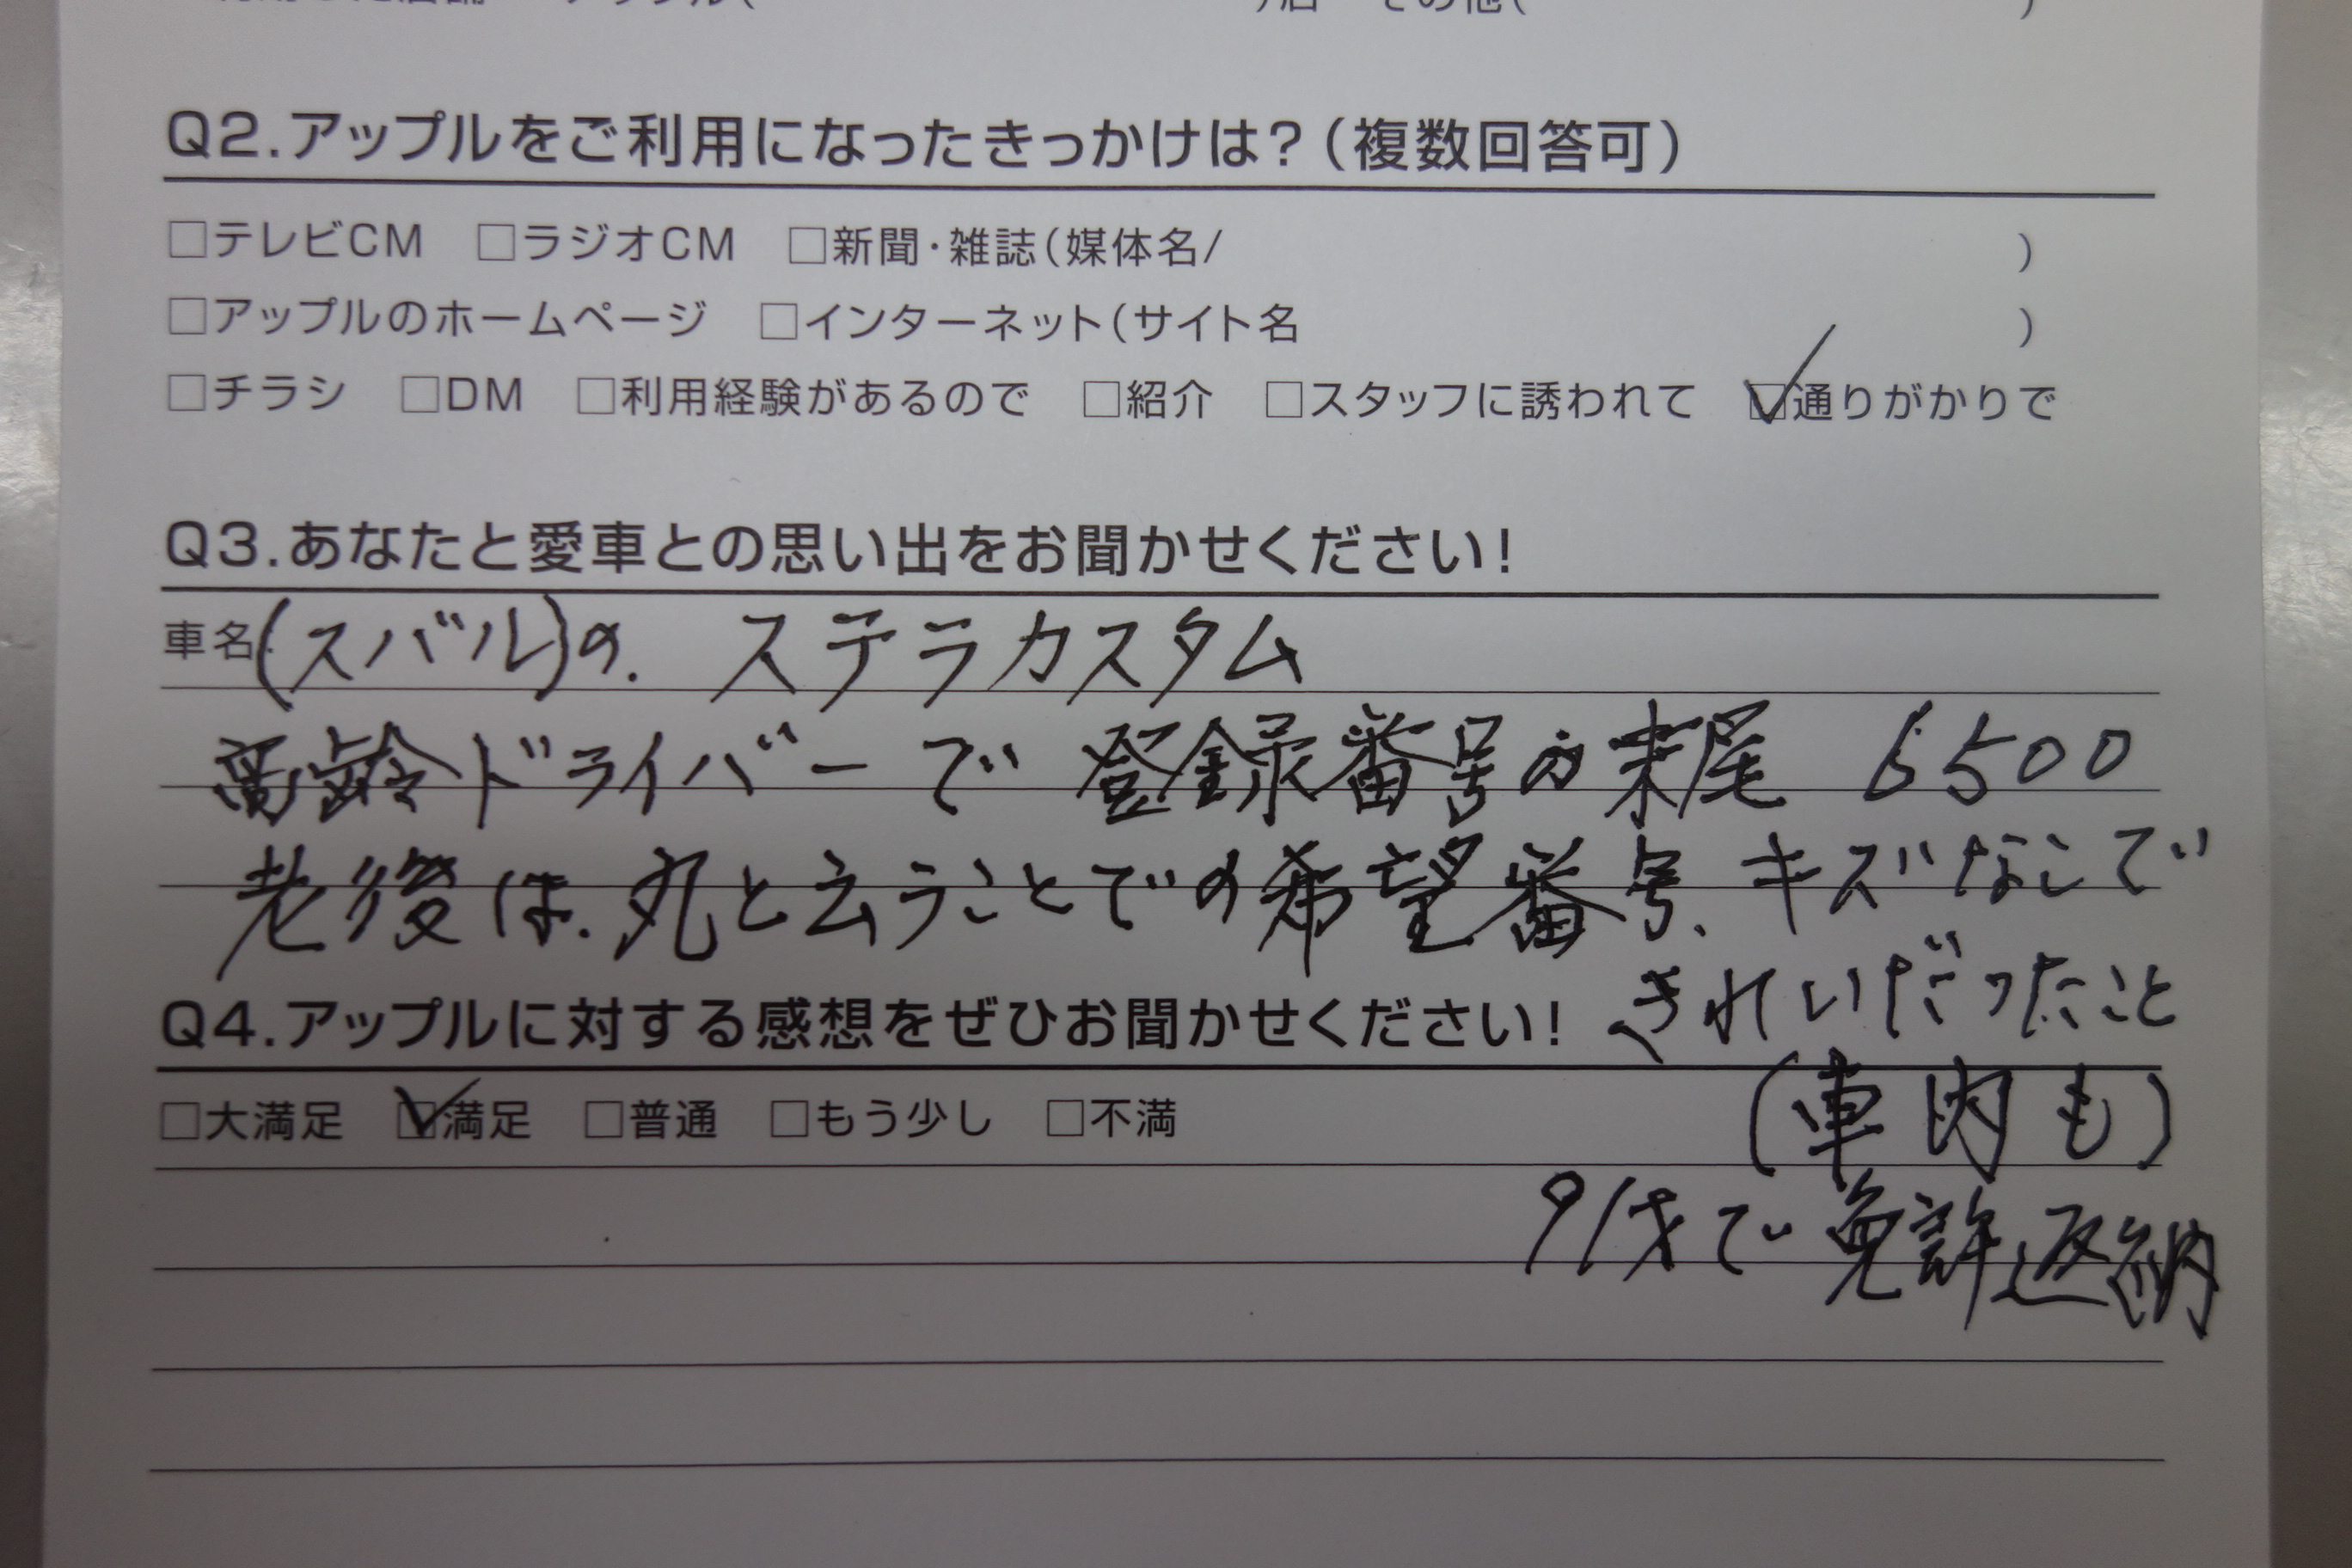 )店 その他( )
Q2.アップルをご利用になったきっかけは?(複数回答可)
□テレビCM □ラジオCM □新聞・雑誌(媒体名/ )
□アップルのホームページ □インターネット(サイト名 )
□チラシ □DM □利用経験があるので □紹介 □スタッフに誘われて ☑通りがかりで
Q3.あなたと愛車との思い出をお聞かせください!
車名(スバル)の. ステラカスタム
高齢ドライバーで 登録番号の末尾 6500
老後は.丸と云うことでの希望番号、キズなしで
きれいだったこと
(車内も)
91才で免許返納
Q4.アップルに対する感想をぜひお聞かせください!
□大満足 ☑満足 □普通 □もう少し □不満